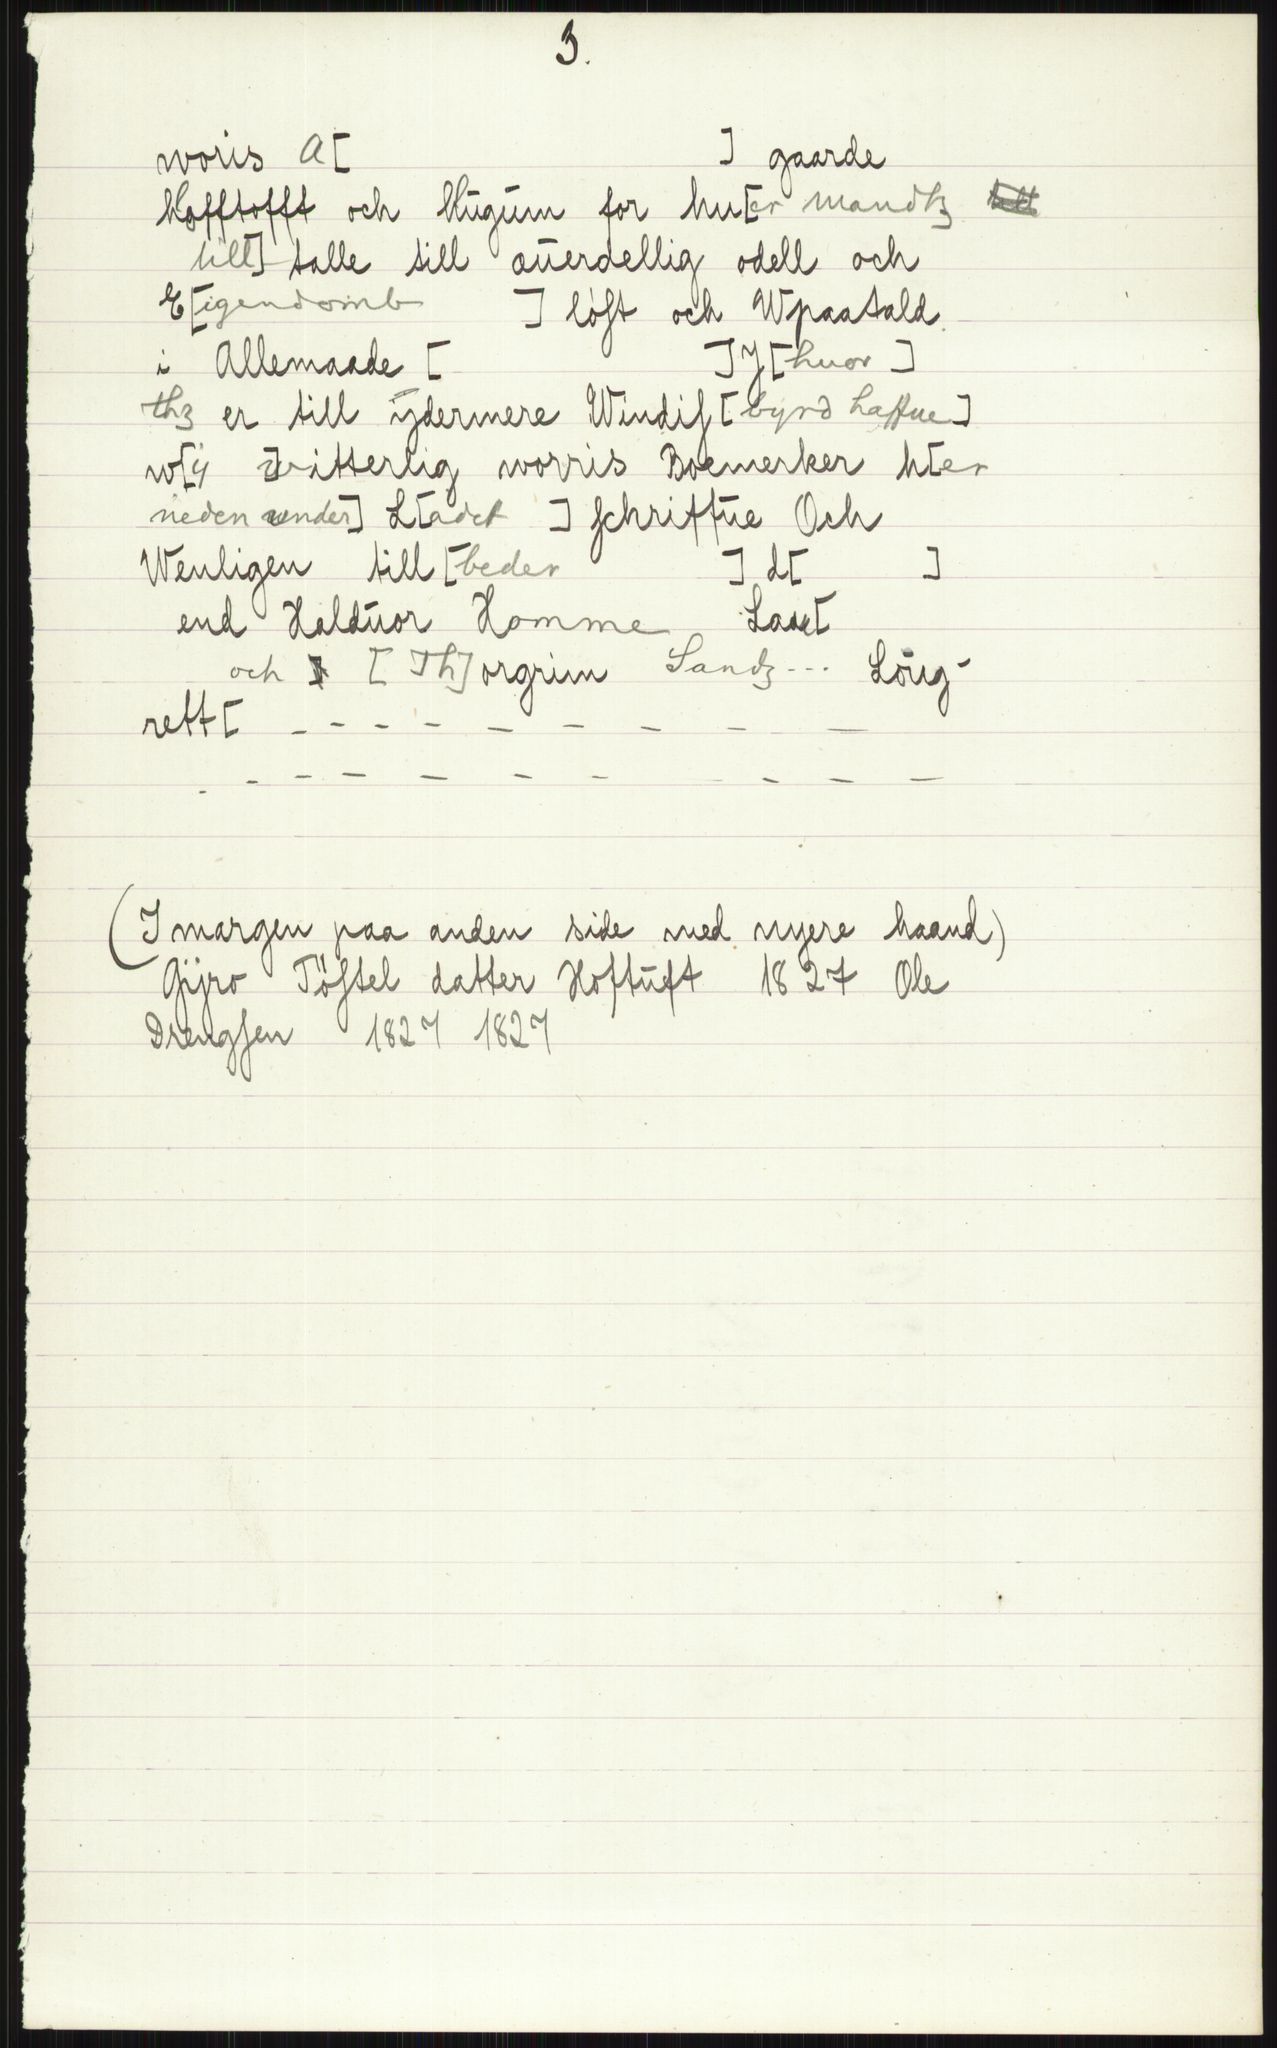 3.
woris A[ ] gaarde
Hofftofft och Hŭgŭm for hu[er mandtz
till] talle till aŭerdellig odell och
E[igendomb ] løst och Wpaatald
i Allemaade [ ] J [huor]
thz er till ÿdermere Windis[byrd haffue]
w[ij w]itterlig worris Boemerker h[er
neden under] L[adet ] schriffŭe Och
Wenligen till [beder ] d[ ]
end Haldŭor Homme Laae[
och [Th]orgrim Sandz... Lŏug-
rett[ - - - - - - - - -
- - - - - - - - - -
(I margen paa anden side med nyere haand)
Gÿro Tŏstel datter Hoftŭft 1827 Ole
Drengsen 1827 1827